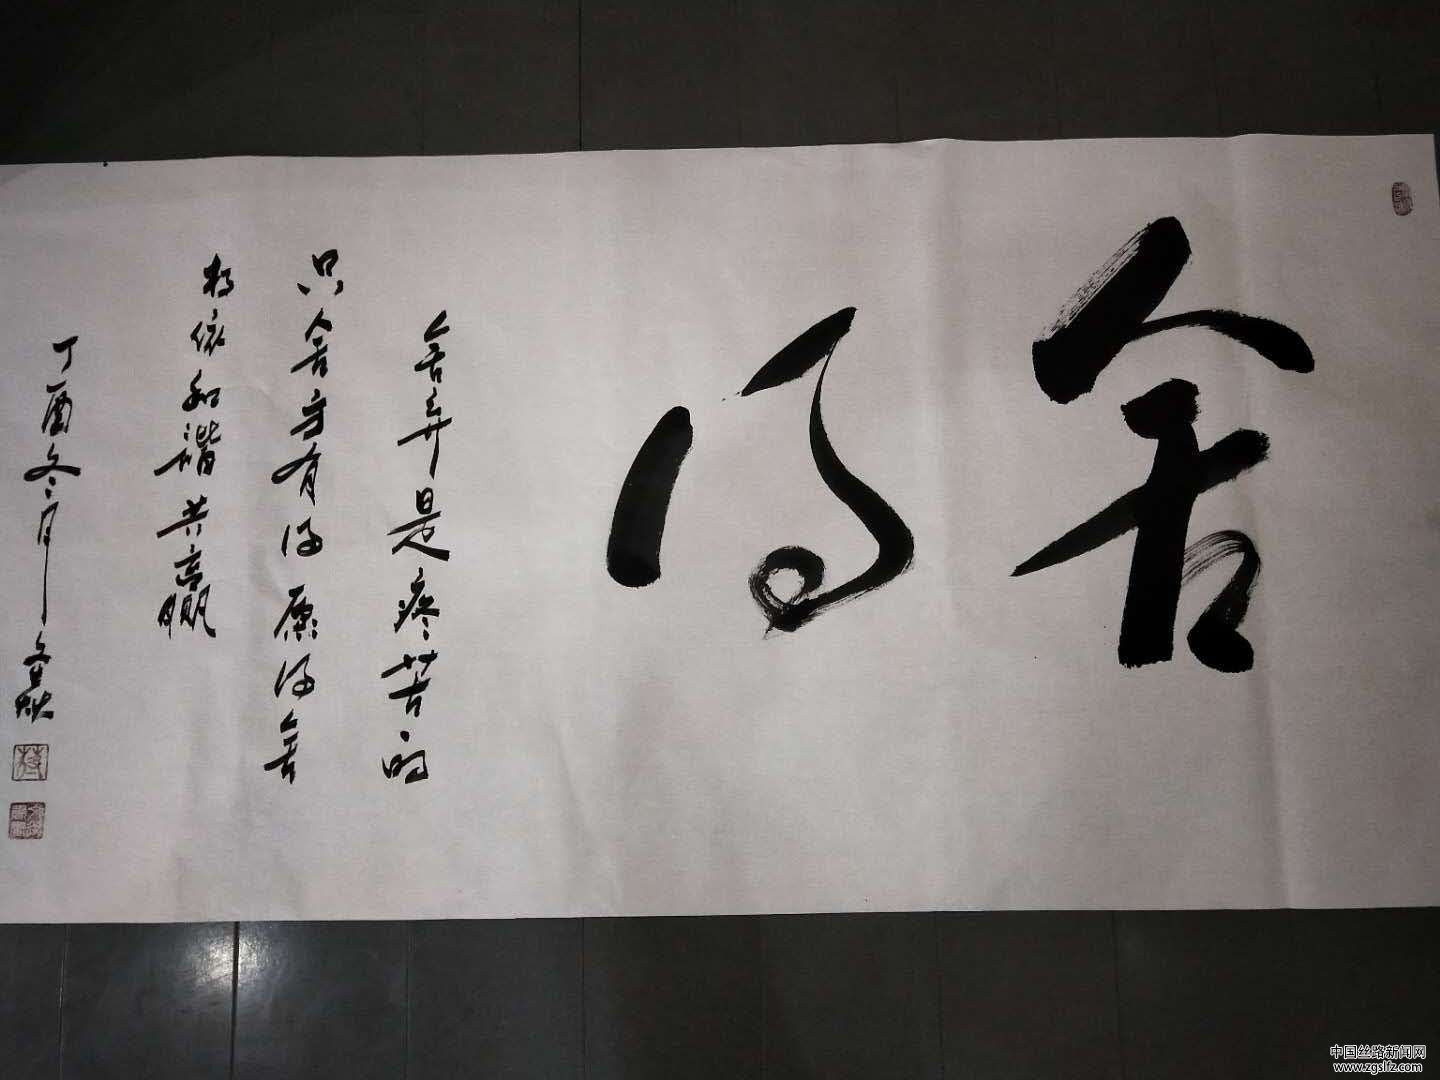 舍得
舍弃是疼苦的
只舍方有得 愿得舍
相依和谐共赢
丁酉冬月
中国丝路新闻网
www.zgslfz.com